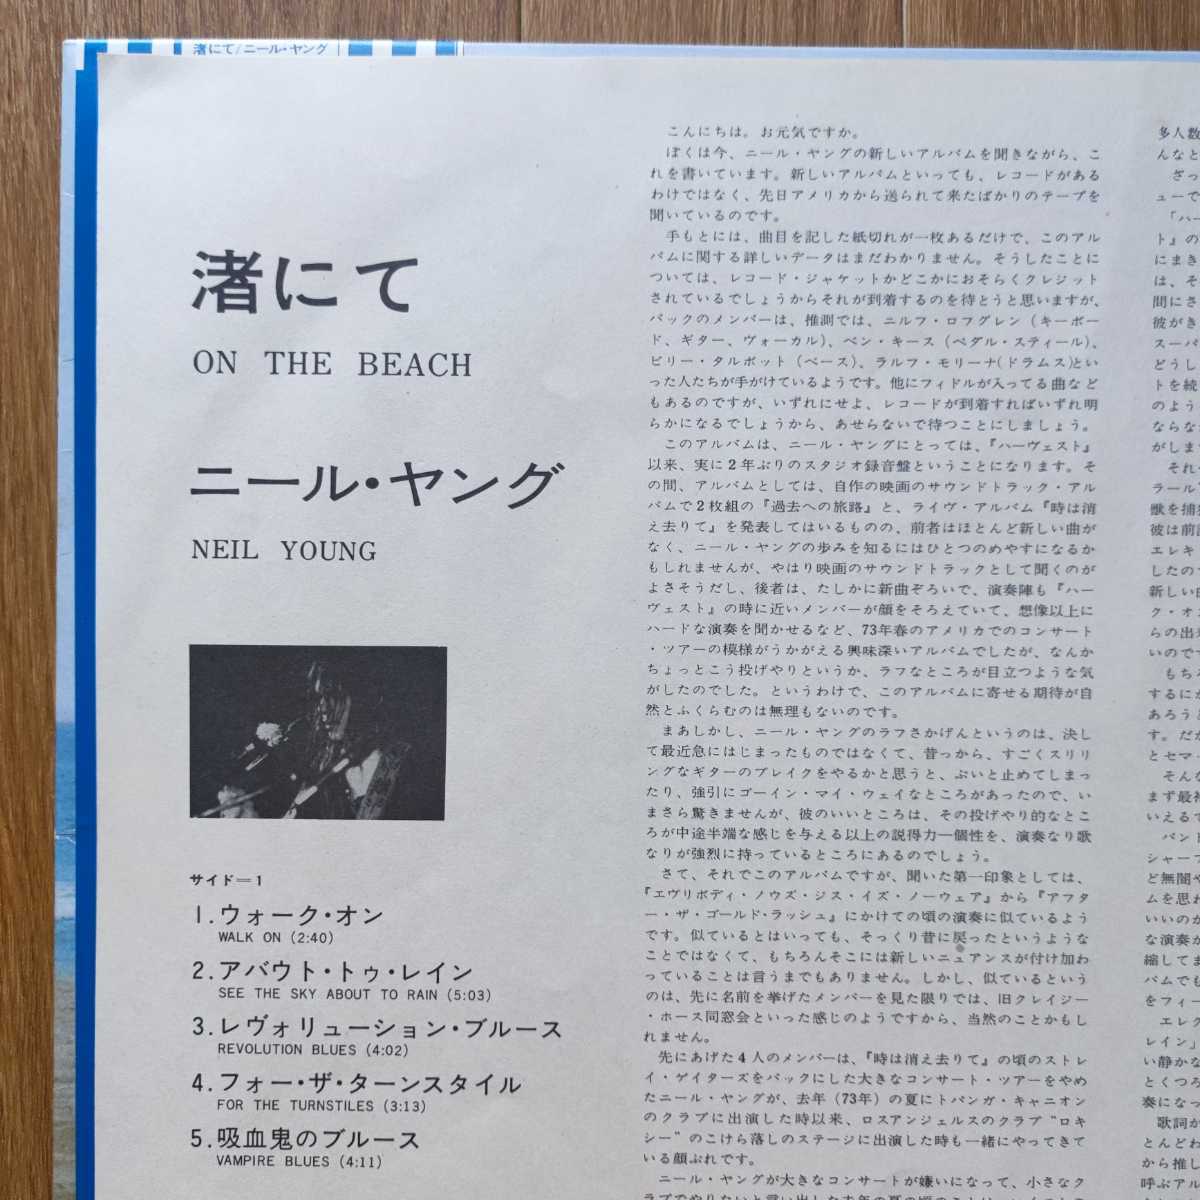 渚にて/ニール・ヤング
渚にて
ON THE BEACH
ニール・ヤング
NEIL YOUNG
サイド=1
1.ウォーク・オン
WALK ON (2:40)
2.アバウト・トゥ・レイン
SEE THE SKY ABOUT TO RAIN (5:03)
3.レヴォリューション・ブルース
REVOLUTION BLUES (4:02)
4.フォー・ザ・ターンスタイル
FOR THE TURNSTILES (3:13)
5.吸血鬼のブルース
VAMPIRE BLUES (4:11)
こんにちは。お元気ですか。
ぼくは今、ニール・ヤングの新しいアルバムを聞きながら、こ
れを書いています。新しいアルバムといっても、レコードがある
わけではなく、先日アメリカから送られて来たばかりのテープを
聞いているのです。
手もとには、曲目を記した紙切れが一枚あるだけで、このアル
バムに関する詳しいデータはまだわかりません。そうしたことに
ついては、レコード・ジャケットかどこかにおそらくクレジット
されているでしょうからそれが到着するのを待とうと思いますが、
バックのメンバーは、推測では、ニルフ・ロフグレン（キーボー
ド、ギター、ヴォーカル）、ベン・キース（ペダル・スティール）、
ビリー・タルボット（ベース）、ラルフ・モリーナ(ドラムス)とい
った人たちが手がけているようです。他にフィドルが入ってる曲など
もあるのですが、いずれにせよ、レコードが到着すればいずれ明
らかになるでしょうから、あせらないで待つことにしましょう。
このアルバムは、ニール・ヤングにとっては、『ハーヴェスト』
以来、実に2年ぶりのスタジオ録音盤ということになります。そ
の間、アルバムとしては、自作の映画のサウンドトラック・アル
バムで2枚組の『過去への旅路』と、ライヴ・アルバム『時は消
え去りて』を発表してはいるものの、前者はほとんど新しい曲が
なく、ニール・ヤングの歩みを知るにはひとつのめやすになるか
もしれませんが、やはり映画のサウンドトラックとして聞くのが
よさそうだし、後者は、たしかに新曲ぞろいで、演奏陣も『ハー
ヴェスト』の時に近いメンバーが顔をそろえていて、想像以上に
ハードな演奏を聞かせるなど、73年春のアメリカでのコンサート
・ツアーの模様がうかがえる興味深いアルバムでしたが、なんか
ちょっとこう投げやりというか、ラフなところが目立つような気
がしたのでした。というわけで、このアルバムに寄せる期待が自
然とふくらむのは無理もないのです。
まあしかし、ニール・ヤングのラフさかげんというのは、決し
て最近急にはじまったものではなくて、昔っから、すごくスリリ
ングなギターのブレイクをやるかと思うと、ぷいと止めてしまっ
たり、強引にゴーイン・マイ・ウェイなところがあったので、い
まさら驚きませんが、彼のいいところは、その投げやり的なとこ
ろが中途半端な感じを与える以上の説得力—個性を、演奏なり歌
なりが強烈に持っているところにあるのでしょう。
さて、それでこのアルバムですが、聞いた第一印象としては、
『エヴリボディ・ノウズ・ジス・イズ・ノーウェア』から『アフタ
ー・ザ・ゴールド・ラッシュ』にかけての頃の演奏に似ているよう
です。似ているとはいっても、そっくり昔に戻ったというような
ことではなくて、もちろんそこには新しいニュアンスが付け加わ
っていることは言うまでもありません。しかし、似ているという
のは、先に名前を挙げたメンバーを見た限りでは、旧クレイジー
・ホース同窓会といった感じのようですから、当然のことかもし
れません。
先にあげた4人のメンバーは、『時は消え去りて』の頃のストレ
イ・ゲイターズをバックにした大きなコンサート・ツアーをやめ
たニール・ヤングが、去年（73年）の夏にトパンガ・キャニオン
のクラブに出演した時以来、ロスアンジェルスのクラブ"ロキ
シー"のこけら落しのステージに出演した時も一緒にやってきて
いる顔ぶれです。
ニール・ヤングが大きなコンサートが嫌いになって、小さなク
多人数
んなと
ざっ
ューで
「ハー
ト』の
にまき
は、そ
間にさ
彼がき
スーパ
どうし
トを続
のよう
ならな
がしま
それ
ラール
獣を捕
彼は前
エレキ
したの
新しい
ク・オ
らの出
いので
もち
するに
あろう
す。だ
とセマ
そん
まず最
いえる
バン
シャー
ど無闇
ムを思
いいの
な演奏
縮してま
バムで
をフィー
エレク
レイン」
い静かな
とくつ
奏にな
歌詞が
とんどわ
から推し
呼ぶアル